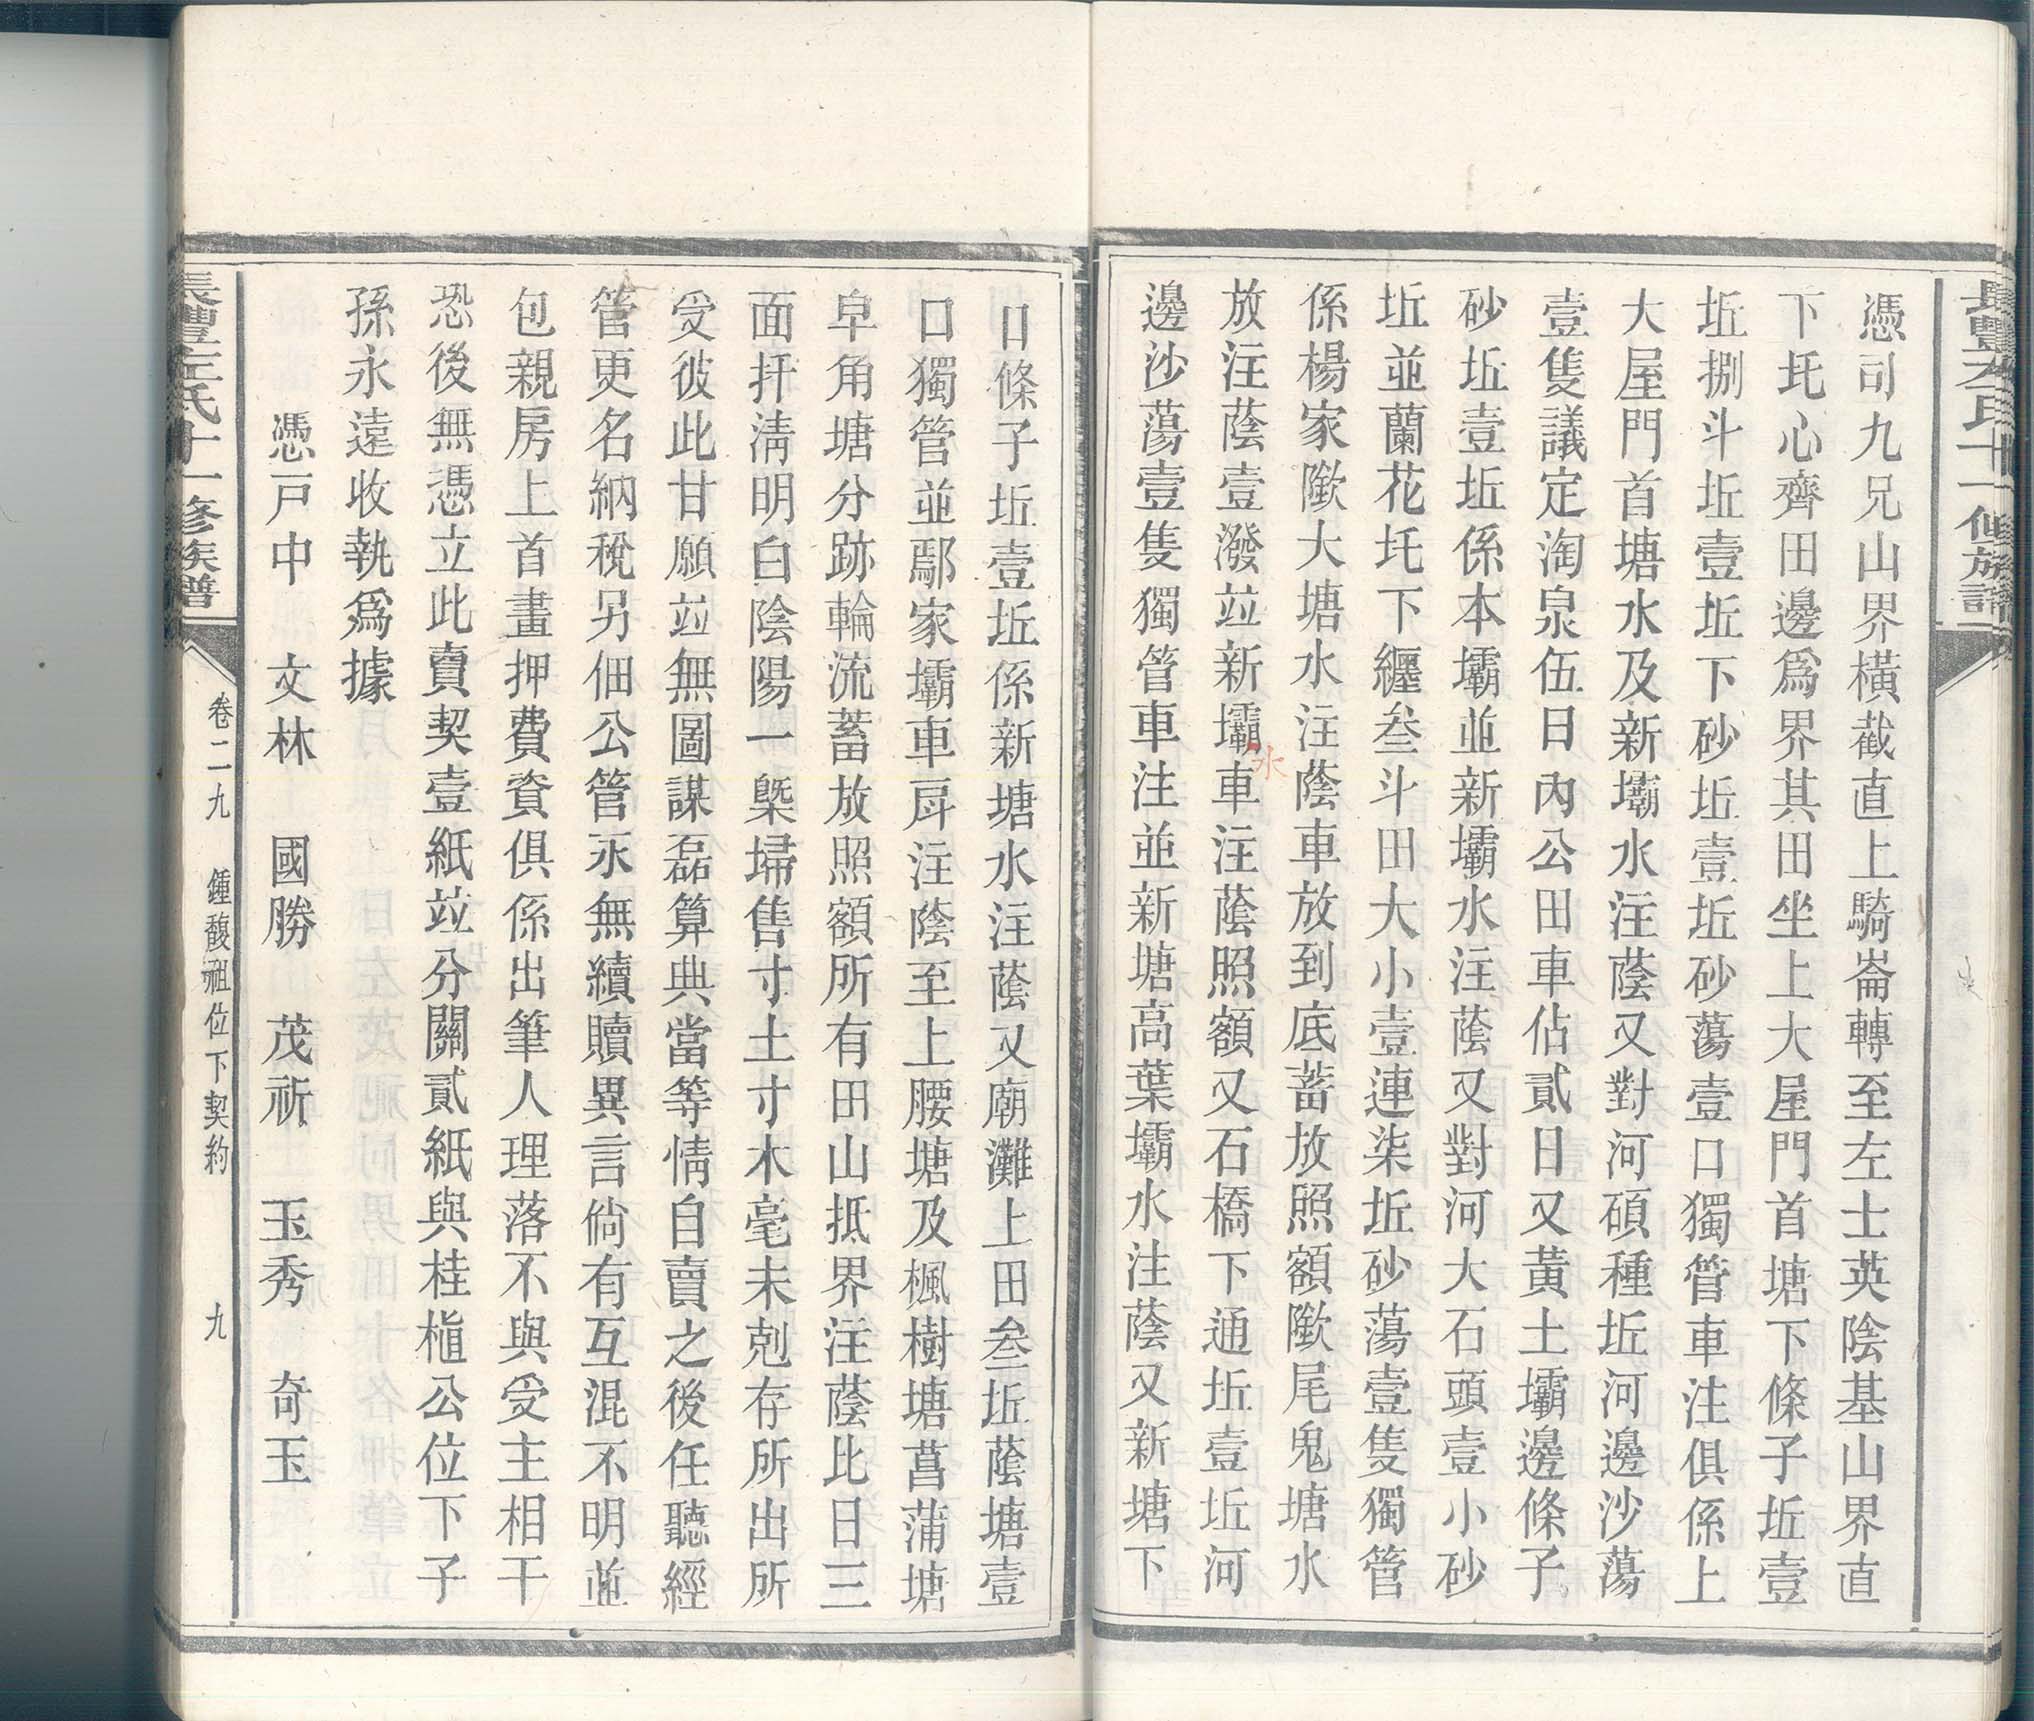 長豐左氏十一修族譜
憑司九兄山界橫截直上騎崙轉至左士英陰基山界直
下圫心齊田邊爲界其田坐上大屋門首塘下條子坵壹
坵捌斗坵壹坵下砂坵壹坵砂蕩壹口獨管車注俱係上
大屋門首塘水及新壩水注蔭又對河碩種坵河邊沙蕩
壹隻議定淘泉伍日內公田車佔貳日又黃土壩邊條子
砂坵壹坵係本壩並新壩水注蔭又對河大石頭壹小砂
坵並蘭花圫下纒叁斗田大小壹連柒坵砂蕩壹隻獨管
係楊家歞大塘水注蔭車放到底蓄放照額歞尾鬼塘水
放注蔭壹潑竝新壩水車注蔭照額又石橋下通坵壹坵河
邊沙蕩壹隻獨管車注並新塘高葉壩水注蔭又新塘下
口條子坵壹坵係新塘水注蔭又廟灘上田叁坵蔭塘壹
口獨管並鄢家壩車戽注蔭至上腰塘及楓樹塘菖蒲塘
皁角塘分跡輪流蓄放照額所有田山抵界注蔭比日三
面扦淸明白陰陽一槩埽售寸土寸木毫未剋存所出所
受彼此甘願竝無圖謀磊算典當等情自賣之後任聽經
管更名納稅另佃公管永無續贖異言倘有互混不明並
包親房上首畫押費資俱係出筆人理落不與受主相干
恐後無憑立此賣契壹紙竝分關貳紙與桂植公位下子
孫永遠收執爲據
憑戸中　文林　國勝　茂祈　玉秀　奇玉
長豐左氏十一修族譜
卷二九　鍾馥祖位下契約　九